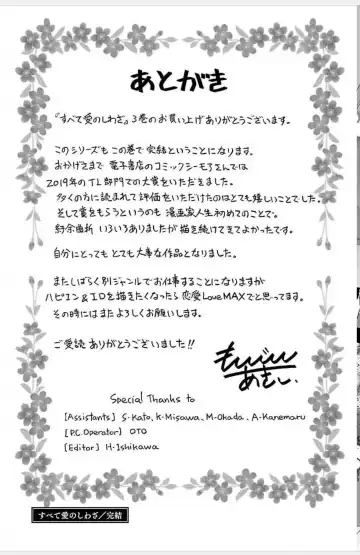 あとがき
『すべて愛のしわざ』3巻のお買い上げありがとうございます。
このシリーズもこの巻で完結ということになります。
おかげさまで電子書店のコミックシーモアさんでは
2019年のTL部門での大賞をいただきました。
多くの方に読まれて評価をいただけたのはとても嬉しいことでした。
そして賞をもらうというのも漫画家人生初めてのことで。
紆余曲折いろいろありましたが描き続けてきてよかったです。
自分にとってもとても大事な作品となりました。
またしばらく別ジャンルでお仕事することになりますが
ハピエン&エロを描きたくなったら恋愛LoveMAXでと思ってます。
その時にはまたよろしくお願いします。
ご愛読ありがとうございました!!
Special Thanks to
[Assistants] S・Kato、K・Misawa、M・Okada、A・Kanemaru
[P.C.Operator] OTO
[Editor] H・Ishikawa
すべて愛のしわざ/完結